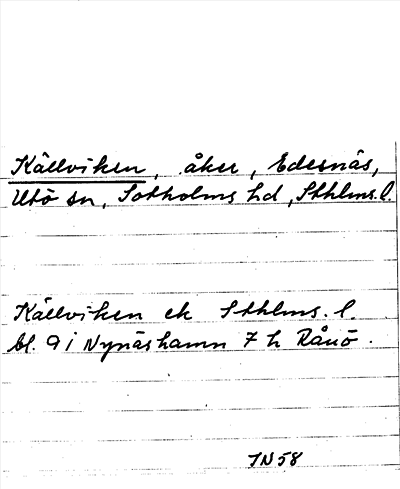 Källviken, åker, Edesnäs,
Utö sn, Sotholms hd, Sthlms. l.
Källviken ek Sthlms. l.
bl. 9 i Nynäshamn 7 h Rånö.
IN 58